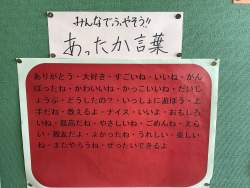 みんなでふやそう!!
あったか言葉
ありがとう・大好き・すごいね・いいね・がん
ばったね・かわいいね・かっこいいね・だいじ
ょうぶ・どうしたの?・いっしょに遊ぼう・上
手だね・教えるよ・ナイス・いいよ・おもしろ
いね・最高だね・やさしいね・ごめんね・えら
い・親友だよ・よかったね・うれしい・楽しい
ね・またやろうね・ぜったいできるよ